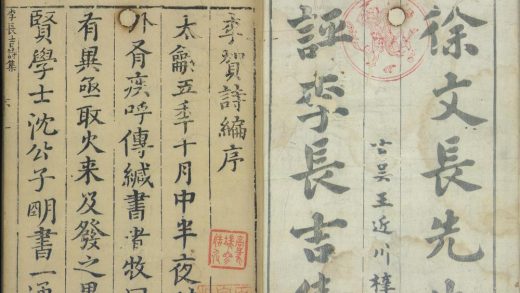 徐文長先
古吳王近川梓
評李長吉
李賀詩編序
太龢五年十月中半夜
外有疾呼傳緘書者牧曰
有異亟取火来及發之果
賢學士沈公子明書一通
李長吉詩集